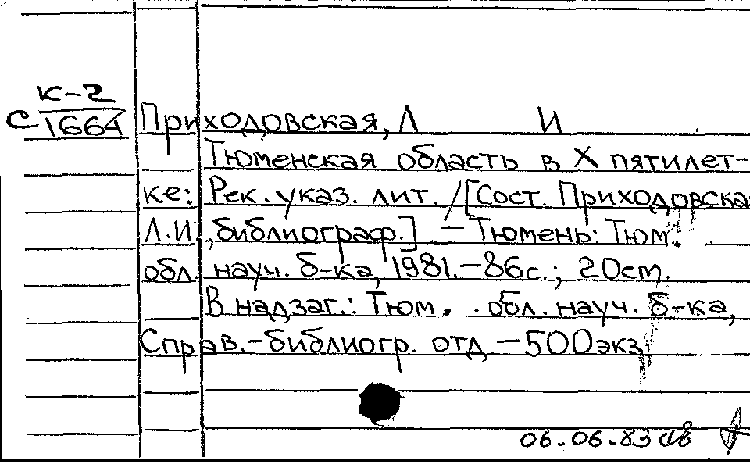 К-2
С-1664
Приходовская, Л И
Тюменская область в X пятилет-
ке: Рек. указ. лит. /[Сост. Приходовска
Л.И., библиограф.] – Тюмень: Тюм.
обл. науч. б-ка, 1981.–86с.; 20см.
В надзаг.: Тюм. обл. науч. б-ка,
Справ.-библиогр. отд. – 500экз
06.06.83